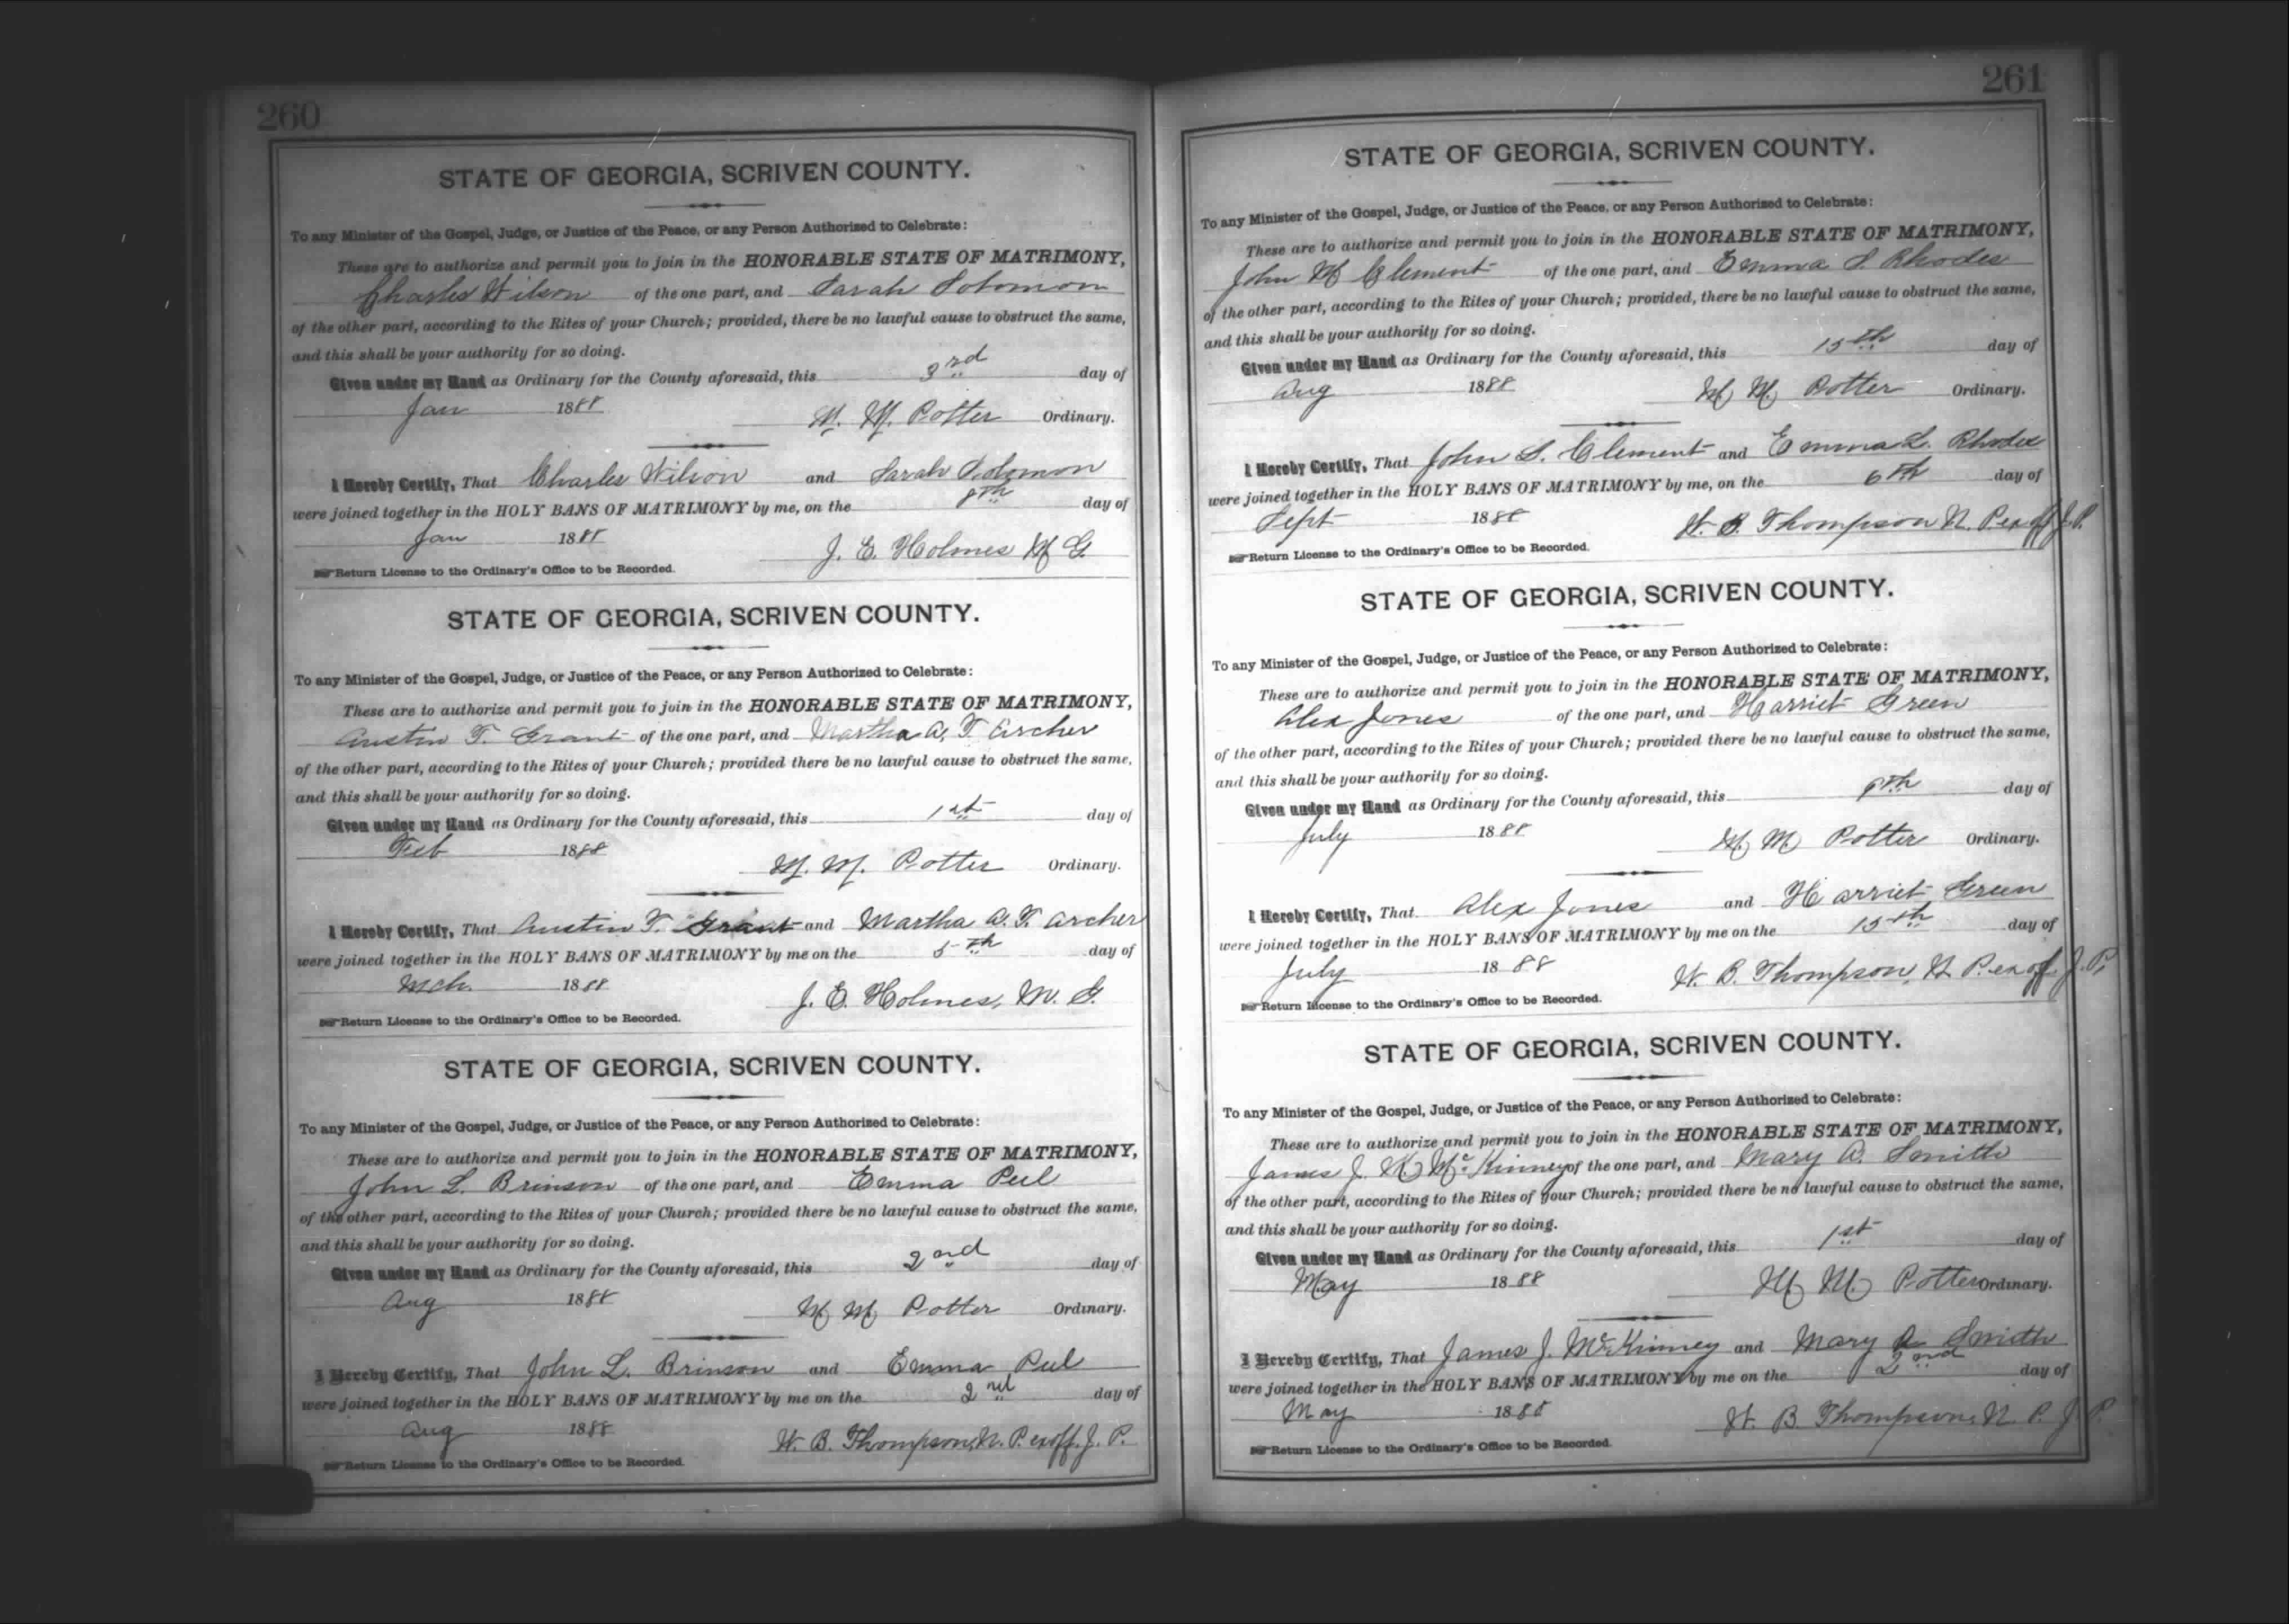 260
STATE OF GEORGIA, SCRIVEN COUNTY.
To any Minister of the Gospel, Judge, or Justice of the Peace, or any Person Authorized to Celebrate:
These are to authorize and permit you to join in the HONORABLE STATE OF MATRIMONY,
Charles Wilson of the one part, and Sarah Solomon
of the other part, according to the Rites of your Church; provided, there be no lawful cause to obstruct the same,
and this shall be your authority for so doing.
Given under my Hand as Ordinary for the County aforesaid, this 3rd day of
Jan 1888 M. M. Potter Ordinary.
I Hereby Certify, That Charles Wilson and Sarah Solomon
were joined together in the HOLY BANS OF MATRIMONY by me, on the 8th day of
Jan 1888 J. E. Holmes M G
Return License to the Ordinary's Office to be Recorded.
STATE OF GEORGIA, SCRIVEN COUNTY.
To any Minister of the Gospel, Judge, or Justice of the Peace, or any Person Authorized to Celebrate:
These are to authorize and permit you to join in the HONORABLE STATE OF MATRIMONY,
Austin T. Grant of the one part, and Martha A. T. Archer
of the other part, according to the Rites of your Church; provided there be no lawful cause to obstruct the same,
and this shall be your authority for so doing.
Given under my Hand as Ordinary for the County aforesaid, this 1st day of
Feb 1888 M. M. Potter Ordinary.
I Hereby Certify, That Austin T. Grant and Martha A. T. Archer
were joined together in the HOLY BANS OF MATRIMONY by me on the 5th day of
Mch. 1888 J. E. Holmes, M. G.
Return License to the Ordinary's Office to be Recorded.
STATE OF GEORGIA, SCRIVEN COUNTY.
To any Minister of the Gospel, Judge, or Justice of the Peace, or any Person Authorized to Celebrate:
These are to authorize and permit you to join in the HONORABLE STATE OF MATRIMONY,
John L. Brinson of the one part, and Emma Peel
of the other part, according to the Rites of your Church; provided there be no lawful cause to obstruct the same,
and this shall be your authority for so doing.
Given under my Hand as Ordinary for the County aforesaid, this 2nd day of
Aug 1888 M M Potter Ordinary.
I Hereby Certify, That John L. Brinson and Emma Peel
were joined together in the HOLY BANS OF MATRIMONY by me on the 2nd day of
Aug 1888 W. B. Thompson, N. P. exoff. J. P.
Return License to the Ordinary's Office to be Recorded.
261
STATE OF GEORGIA, SCRIVEN COUNTY.
To any Minister of the Gospel, Judge, or Justice of the Peace, or any Person Authorized to Celebrate:
These are to authorize and permit you to join in the HONORABLE STATE OF MATRIMONY,
John M Clement of the one part, and Emma S. Rhodes
of the other part, according to the Rites of your Church; provided, there be no lawful cause to obstruct the same,
and this shall be your authority for so doing.
Given under my Hand as Ordinary for the County aforesaid, this 15th day of
Aug 1888 M M Potter Ordinary.
I Hereby Certify, That John S. Clement and Emma L. Rhodes
were joined together in the HOLY BANS OF MATRIMONY by me, on the 6th day of
Sept 1888 W. B. Thompson N. P exoff J. P.
Return License to the Ordinary's Office to be Recorded.
STATE OF GEORGIA, SCRIVEN COUNTY.
To any Minister of the Gospel, Judge, or Justice of the Peace, or any Person Authorized to Celebrate:
These are to authorize and permit you to join in the HONORABLE STATE OF MATRIMONY,
Alex Jones of the one part, and Harriet Green
of the other part, according to the Rites of your Church; provided there be no lawful cause to obstruct the same,
and this shall be your authority for so doing.
Given under my Hand as Ordinary for the County aforesaid, this day of
July 1888 M M Potter Ordinary.
I Hereby Certify, That Alex Jones and Harriet Green
were joined together in the HOLY BANS OF MATRIMONY by me on the 15th day of
July 1888 W. B. Thompson, N. P. exoff. J. P.
Return License to the Ordinary's Office to be Recorded.
STATE OF GEORGIA, SCRIVEN COUNTY.
To any Minister of the Gospel, Judge, or Justice of the Peace, or any Person Authorized to Celebrate:
These are to authorize and permit you to join in the HONORABLE STATE OF MATRIMONY,
James J. McKinney of the one part, and Mary A. Smith
of the other part, according to the Rites of your Church; provided there be no lawful cause to obstruct the same,
and this shall be your authority for so doing.
Given under my Hand as Ordinary for the County aforesaid, this 1st day of
May 1888 M M Potter Ordinary.
I Hereby Certify, That James J. McKinney and Mary A Smith
were joined together in the HOLY BANS OF MATRIMONY by me on the 2nd day of
May 1888 W. B. Thompson, N. P. J. P.
Return License to the Ordinary's Office to be Recorded.